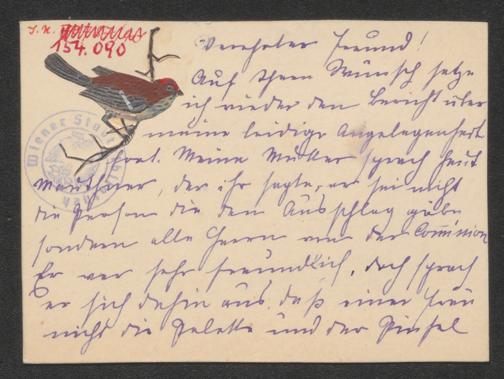 I. N.
154.090
Wiener Stadt
Verehrter Freund!
Auf Ihren Wunsch setze
ich wieder den Bericht über
meine leidige Angelegenheit
fort. Meine Mutter sprach heut
Mauthner, der ihr sagte, er sei nicht
die Person die den Ausschlag gäbe
sondern alle Herrn von der Commission
Er war sehr freundlich, doch sprach
er sich dahin aus daß einer Frau
nicht die Palette und der Pinsel